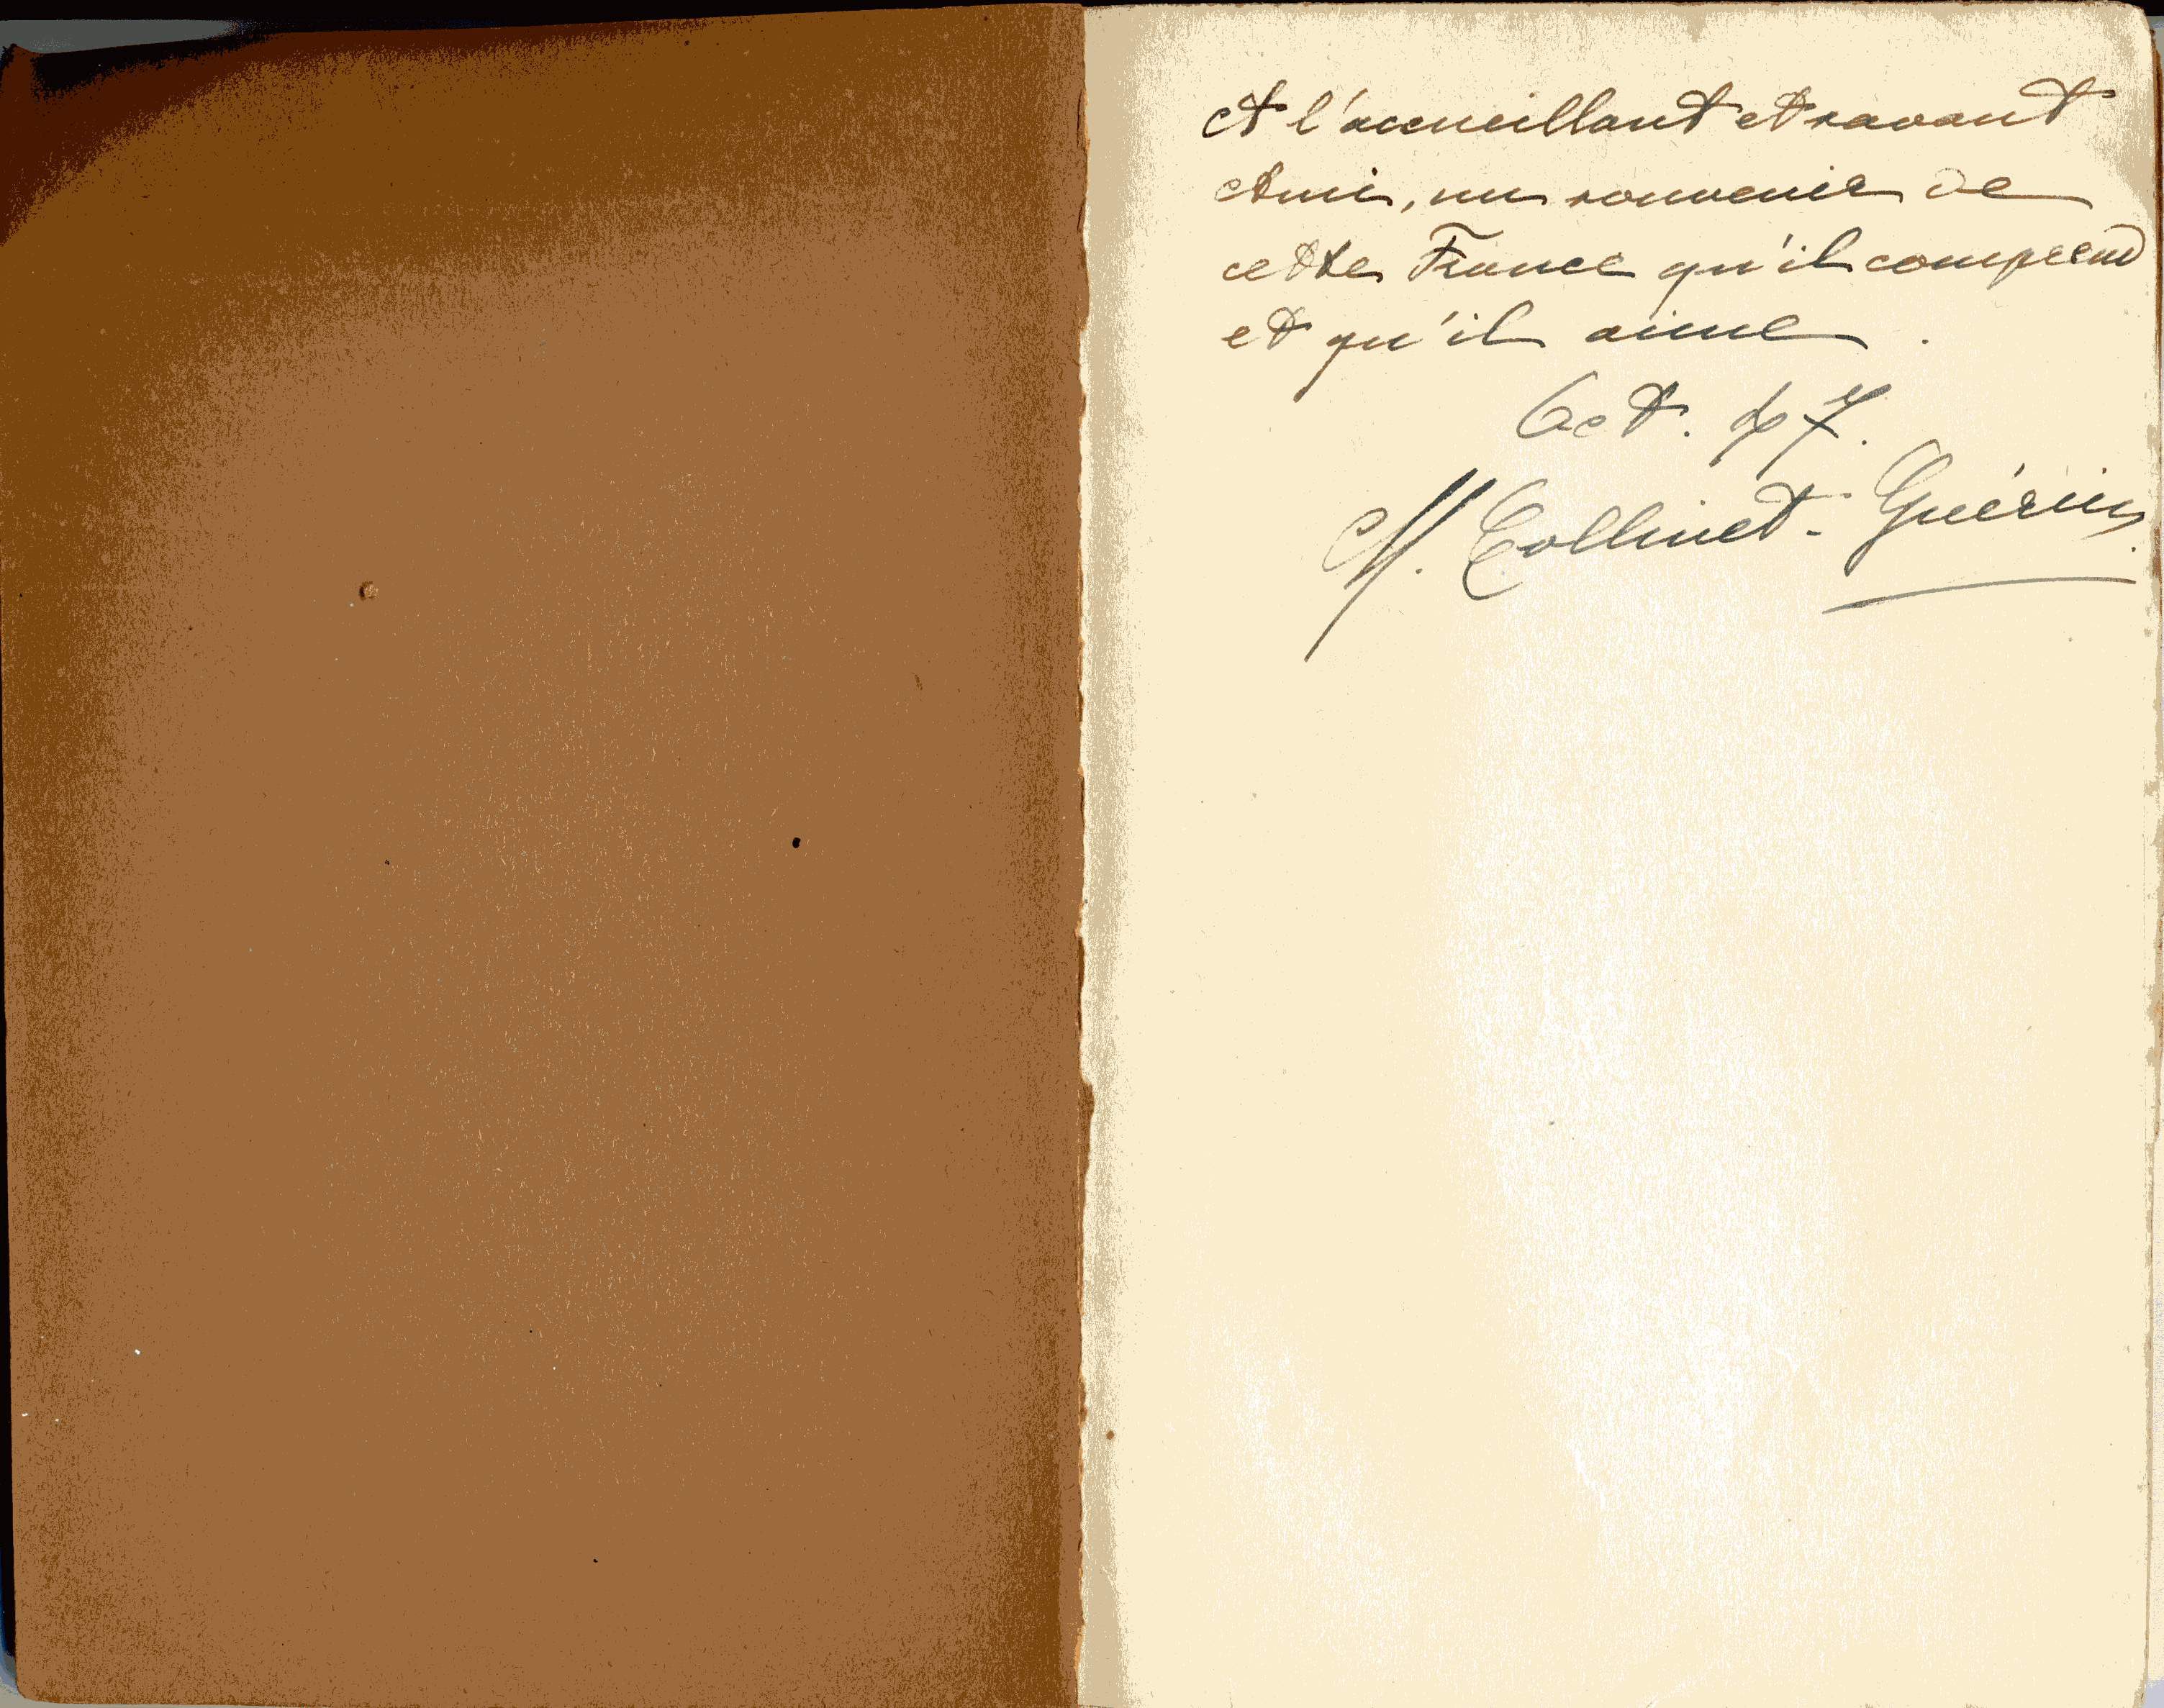 A l'accueillant et savant
Ami, un souvenir de
cette France qu'il comprend
et qu'il aime.
Oct. 47.
M. Collinet-Guérin.